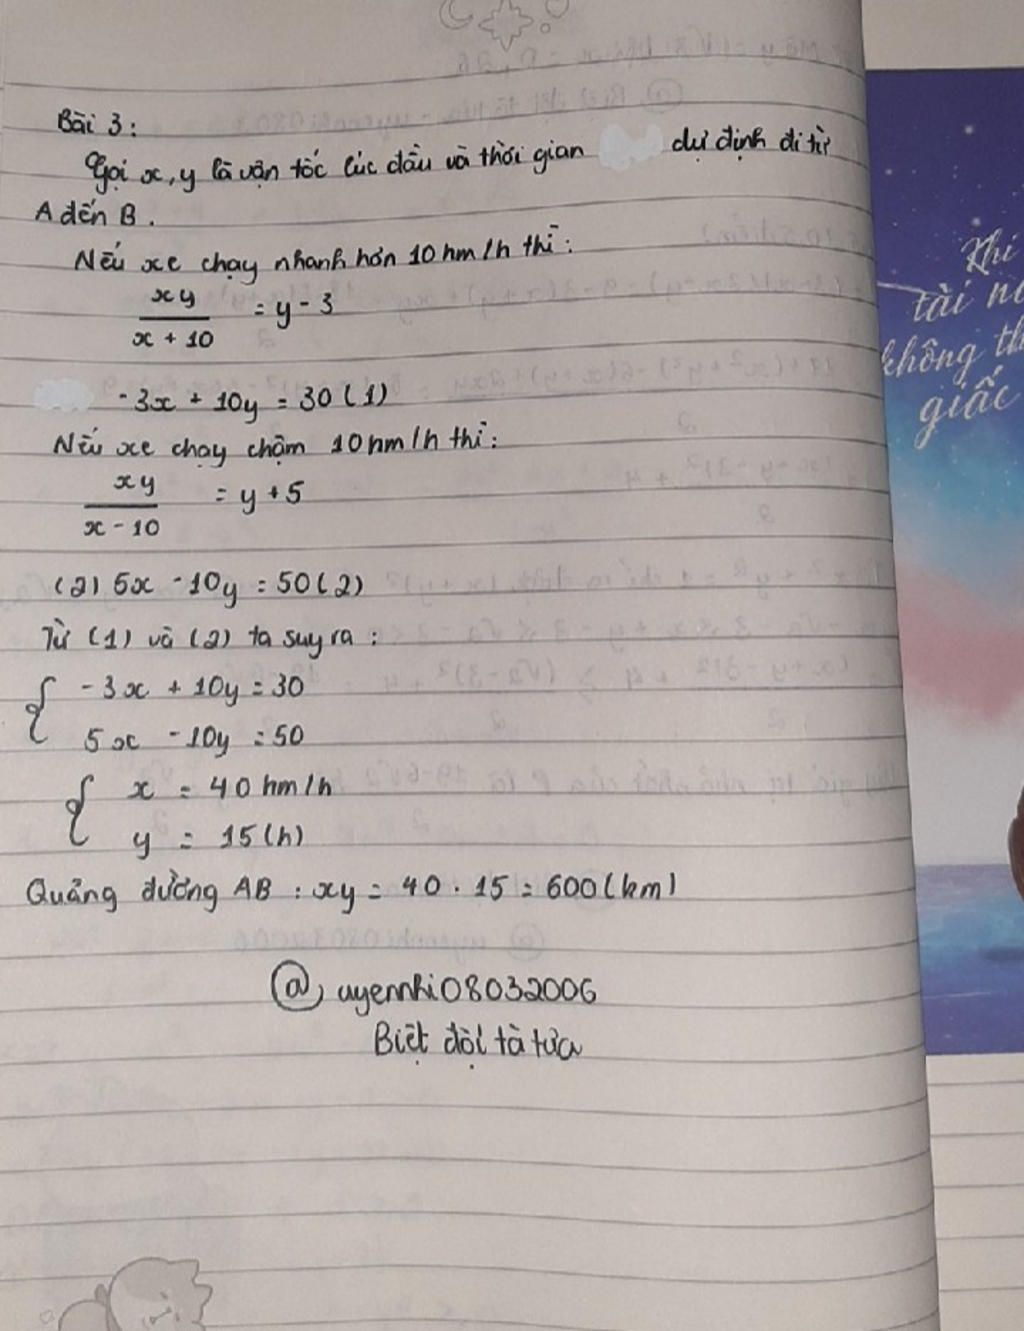 Bài 3:
Gọi x, y là vận tốc lúc đầu và thời gian dự định đi từ
A đến B.
Nếu xe chạy nhanh hơn 10 km/h thì:
xy
x + 10
= y - 3
-3x + 10y = 30 (1)
Nếu xe chạy chậm 10 km/h thì:
xy
x - 10
= y + 5
(2) 5x - 10y = 50 (2)
Từ (1) và (2) ta suy ra:
-3x + 10y = 30
5x - 10y = 50
x = 40 km/h
y = 15 (h)
Quảng đường AB : xy = 40 . 15 = 600 (km)
@ uyennhi08032006
Biệt đội tà tưa
Khi
tài n
không th
giấc